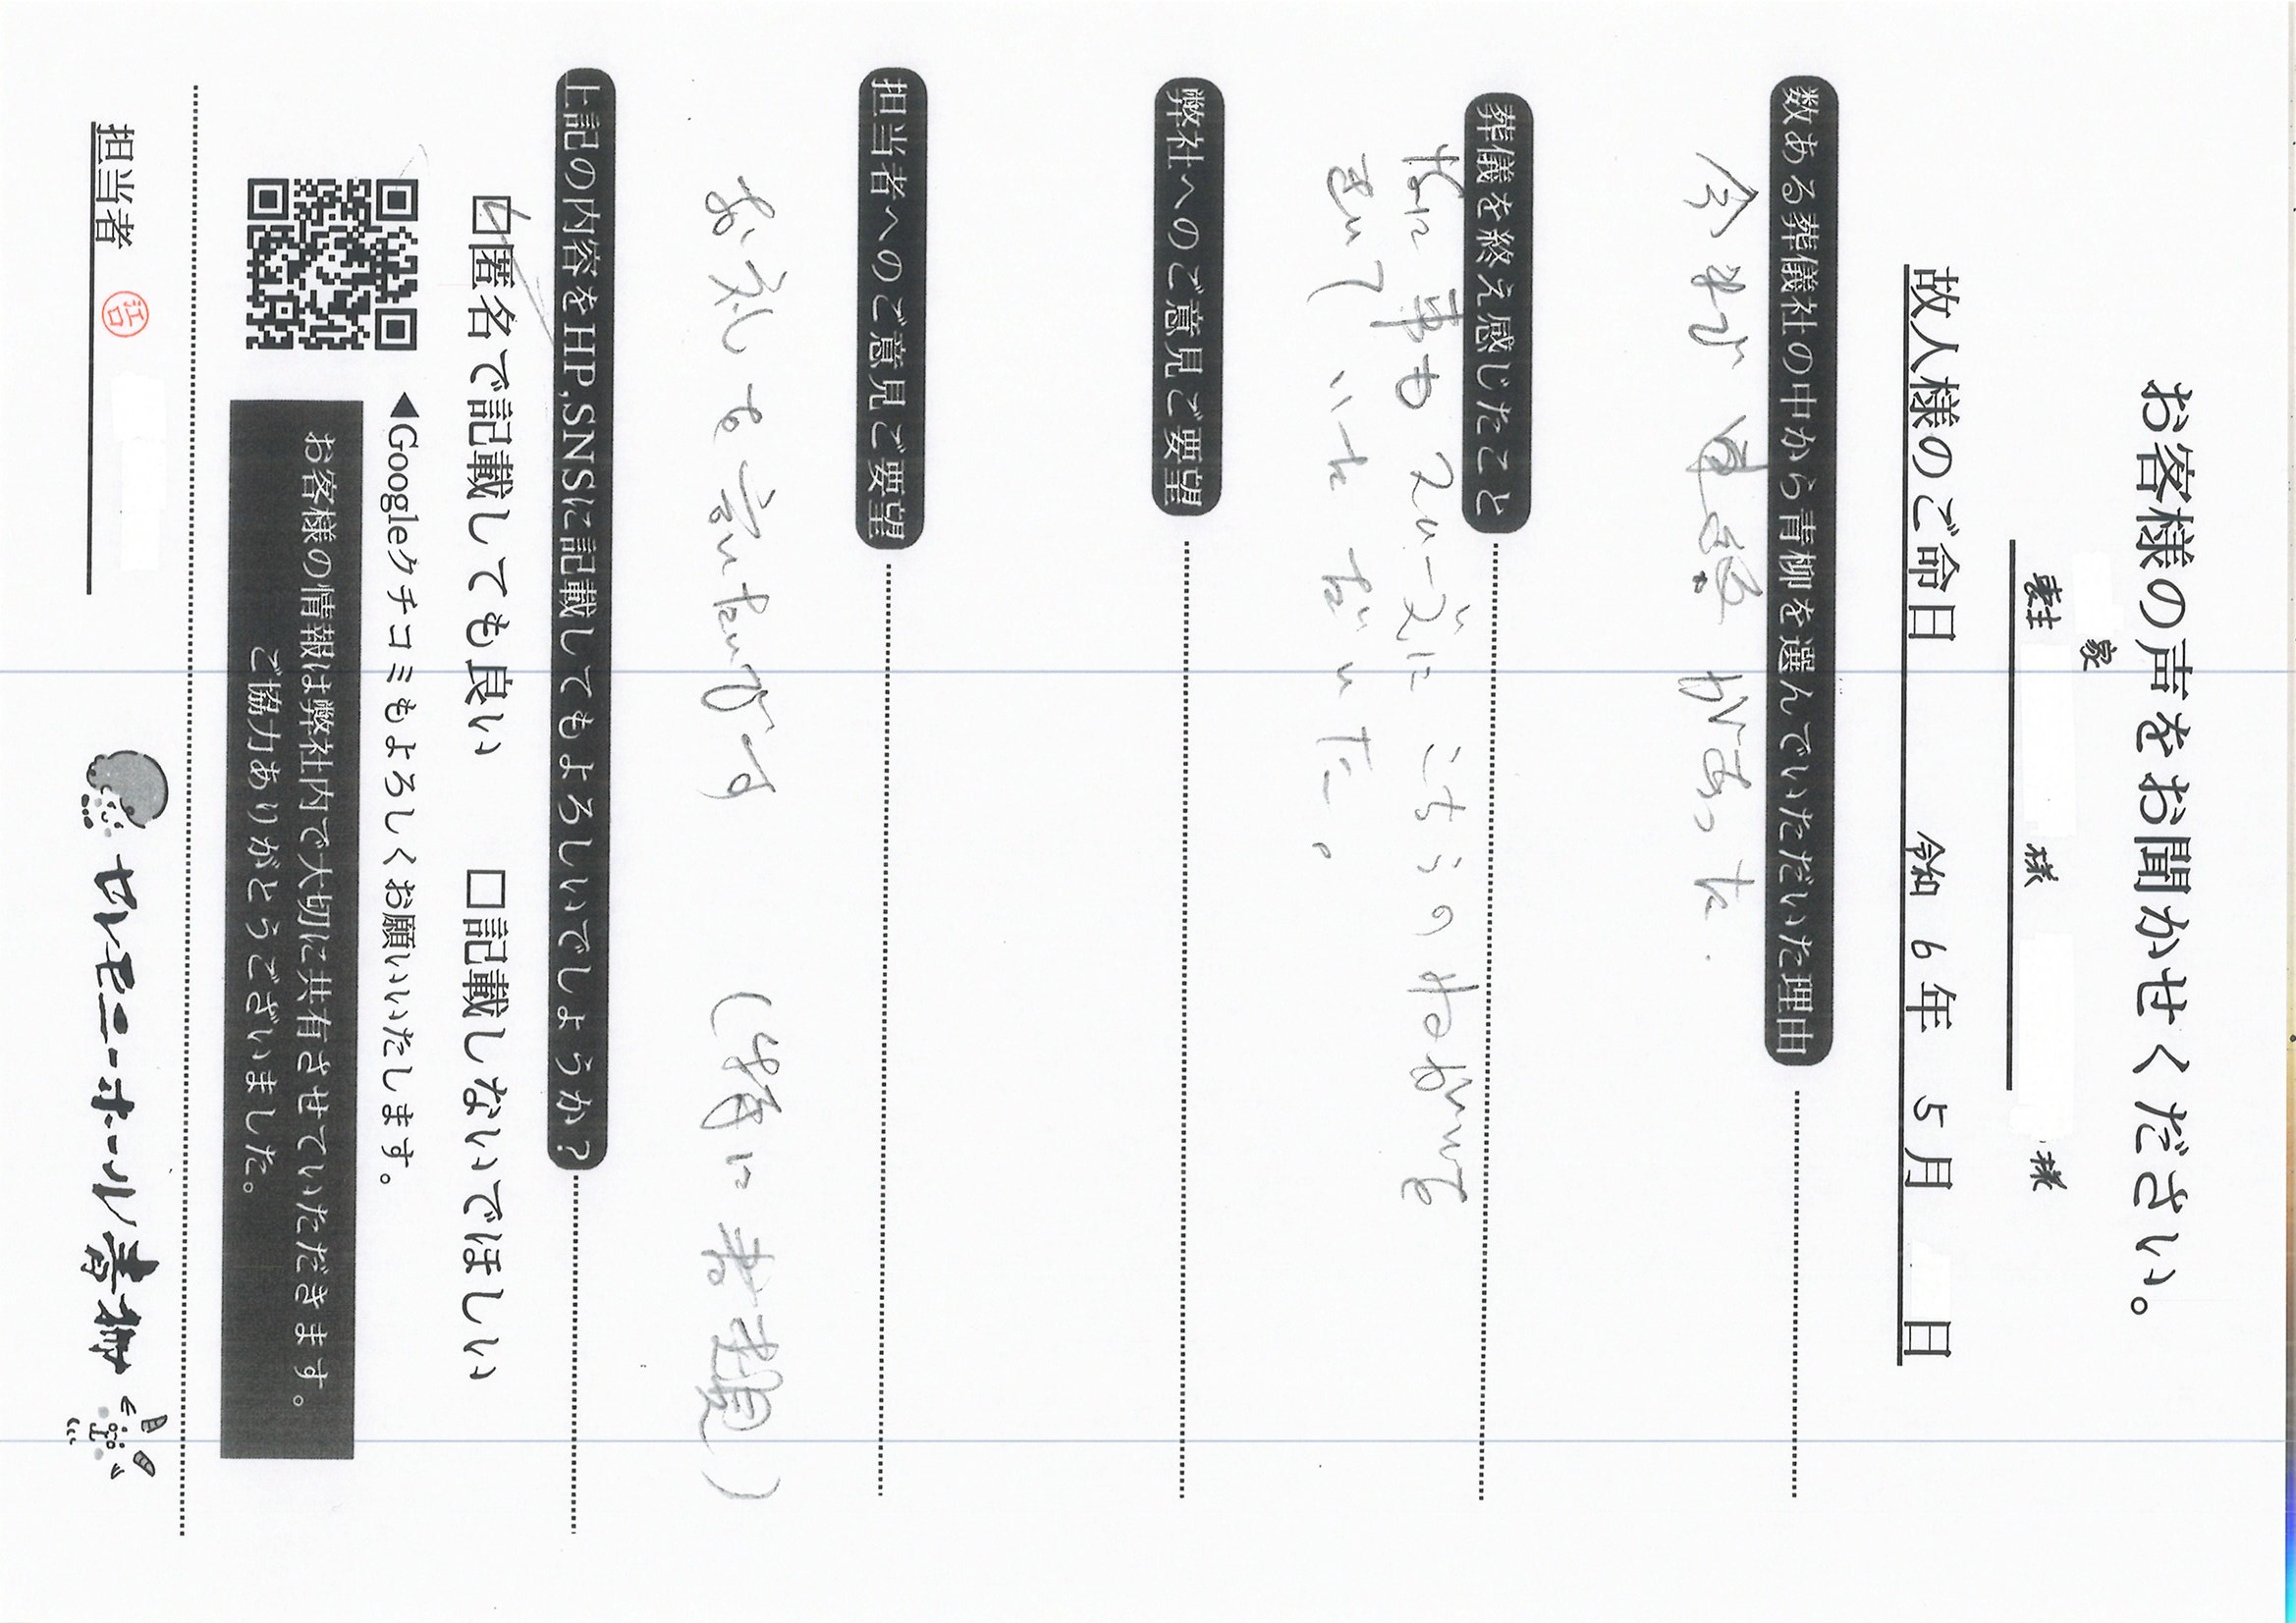 お客様の声をお聞かせください。
家
喪主 様 様
故人様のご命日 令和 6年 5月 日
数ある葬儀社の中から青柳を選んでいただいた理由
今まで 遺恩 があった.
葬儀を終え感じたこと
何事も スムーズに こちらの
きいて いただいた。
弊社へのご意見ご要望
担当者へのご意見ご要望
お礼を言いたいです (特に
上記の内容をHP,SNSに記載してもよろしいでしょうか?
☑匿名で記載しても良い □記載しないでほしい
◀Googleクチコミもよろしくお願いいたします。
お客様の情報は弊社内で大切に共有させていただきます。
ご協力ありがとうございました。
担当者
セレモニーホール青柳